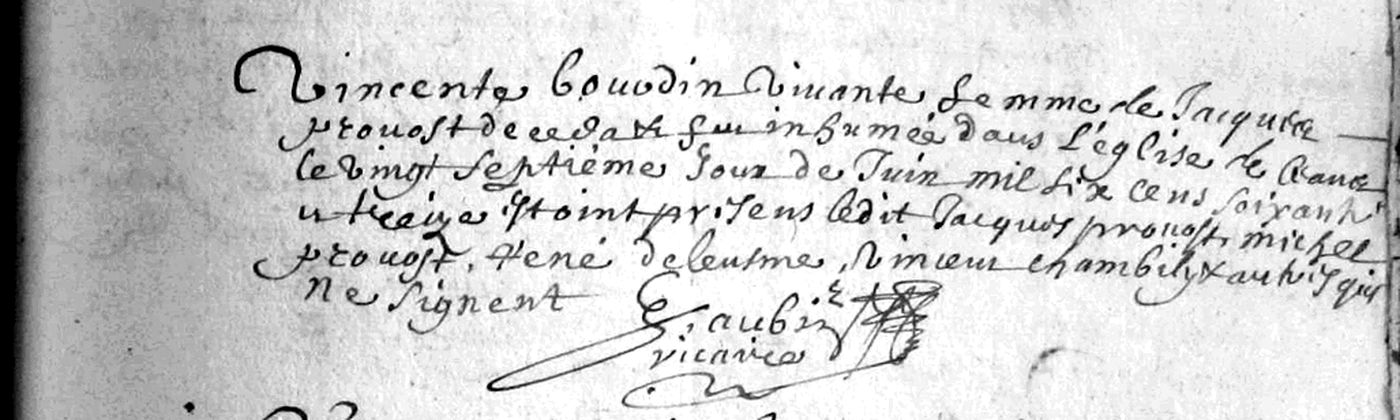 Vincente boudin vivante femme de Jacques
provost decedee fut inhumée dans l'églize de
le vingt septiéme Jour de Juin mil six cens soixante
et treize estoint presens ledit Jacques provost, michel
provost, rené deleusme, vincent chambily & autres qui
ne signent
aubin
vicaire